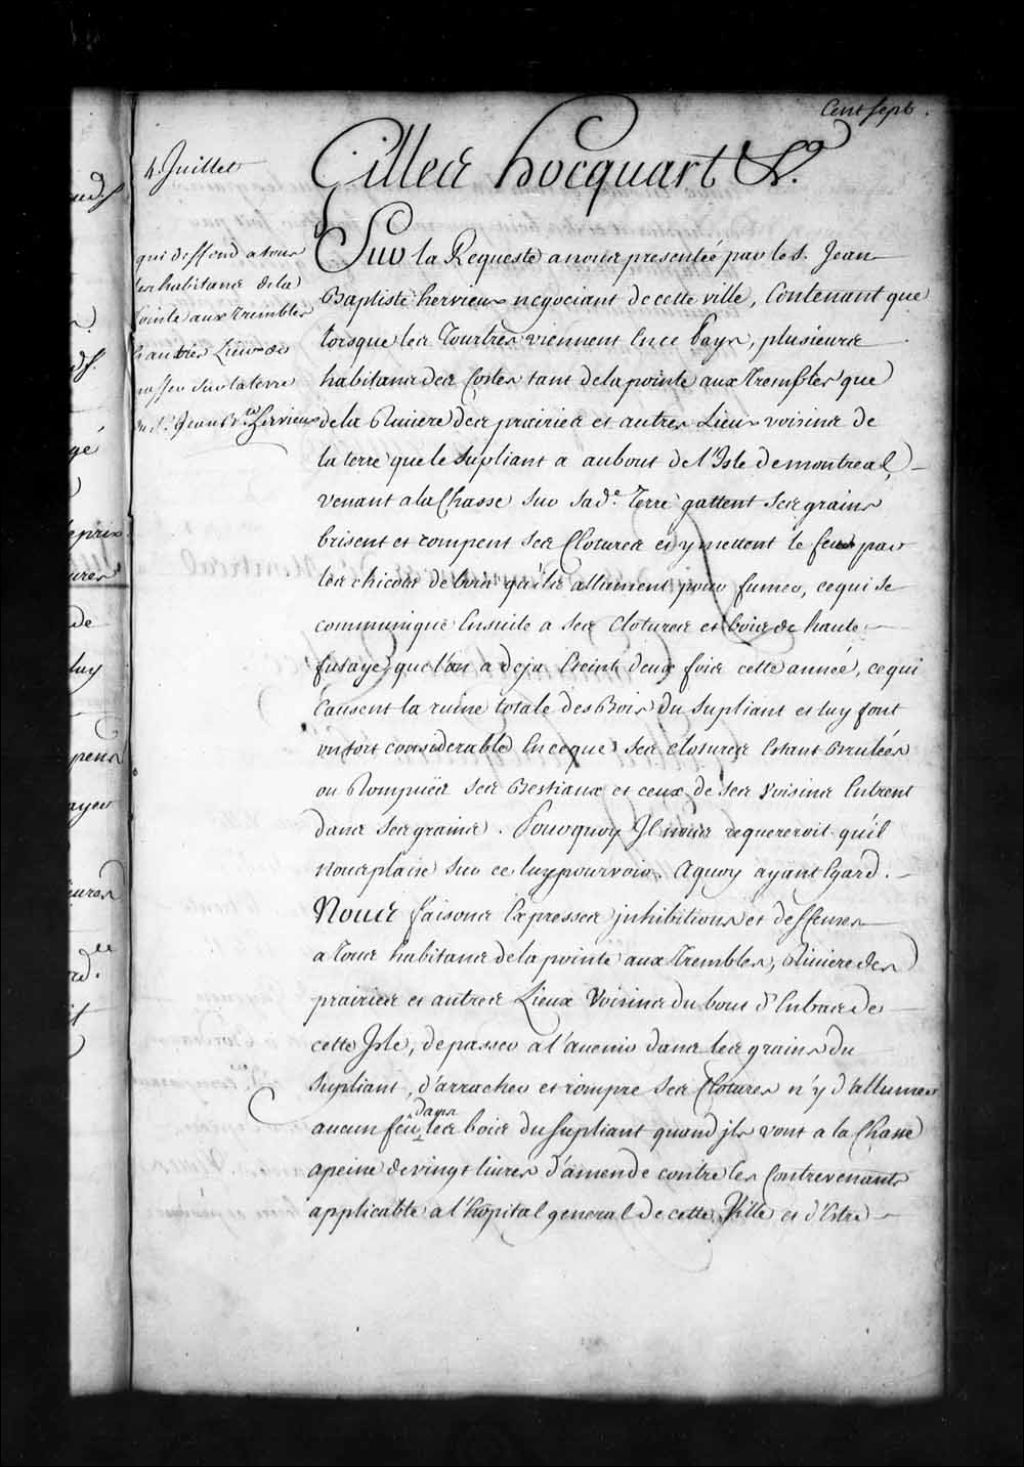 Cent sept.
4 Juillet
Gilles hocquart &a.
qui deffend a tous
les habitans de la
pointe aux trembles
& autres Lieux de
passer sur la terre
du Sr. Jean Bte. hervieux
Sur la Requeste a nous presentée par le S. Jean
Baptiste hervieux negociant de cette ville, Contenant que
lorsque les Tourtres viennent En ce Pays, plusieurs
habitans des Costes tant de la pointe aux Trembles que
de la Riviere des prairies et autres Lieux voisins de
la terre que le Supliant a au bout de l'Isle de montreal,
venant a la Chasse sur sa de. Terre gattent ses grains
brisent et rompent ses Clotures et y mettent le feu par
les chicots de bois qu'ils allument pour fumer, ce qui se
communique Ensuite a ses Clotures et bois de haute
futaye que l'on a deja Eteint deux fois cette année, ce qui
Causent la ruine totale des Bois du Supliant et luy font
un tort considerable En ce que ses clotures Estant Brulées
ou Rompües ses Bestiaux et ceux de ses voisins Entrent
dans ses grains. Pourquoy Il nous requereroit qu'il
nous plaise sur ce luy pourvoir. A quoy ayant Egard.
Nous faisons Expresses inhibitions et deffenses
a tous habitans de la pointe aux Trembles, Riviere des
prairies et autres Lieux Voisins du bout d'Enbas de
cette Isle, de passer a l'avenir dans les grains du
Supliant, d'arracher et rompre ses Clotures n'y d'allumer
aucun feu dans les bois du Supliant quand jls vont a la Chasse
apeine de vingt livres d'amende contre les Contrevenants
applicable a l'hôpital general de cette Ville et d'Estre